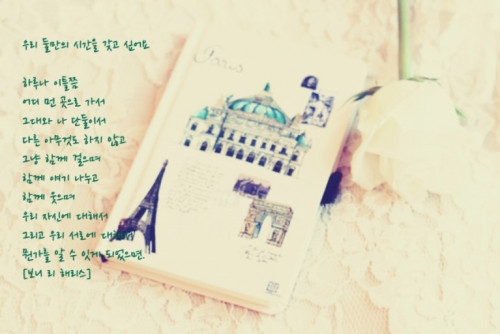 우리 둘만의 시간을 갖고 싶어요
하루나 이틀쯤
어디 먼 곳으로 가서
그대와 나 단둘이서
다른 아무것도 하지 않고
그냥 함께 걸으며
함께 얘기 나누고
함께 웃으며
우리 자신에 대해서
그리고 우리 서로에
뭔가를 알 수 있게 되었으면.
[보니 리 해리스]
Paris